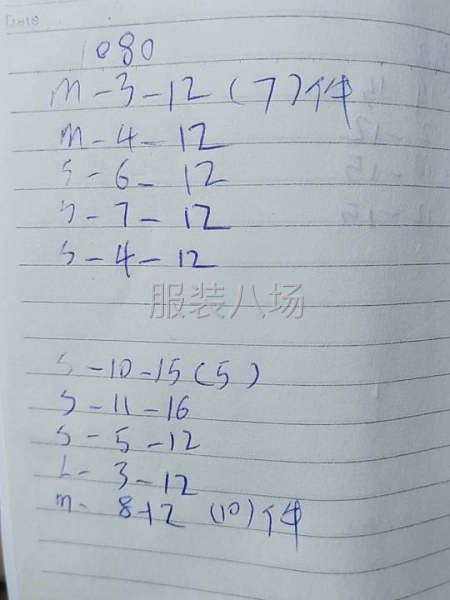 1080
M-3-12(7)件
M-4-12
S-6-12
S-7-12
S-4-12
服装八场
S-10-15(5)
S-11-16
S-5-12
L-3-12
M-8-12(10)件